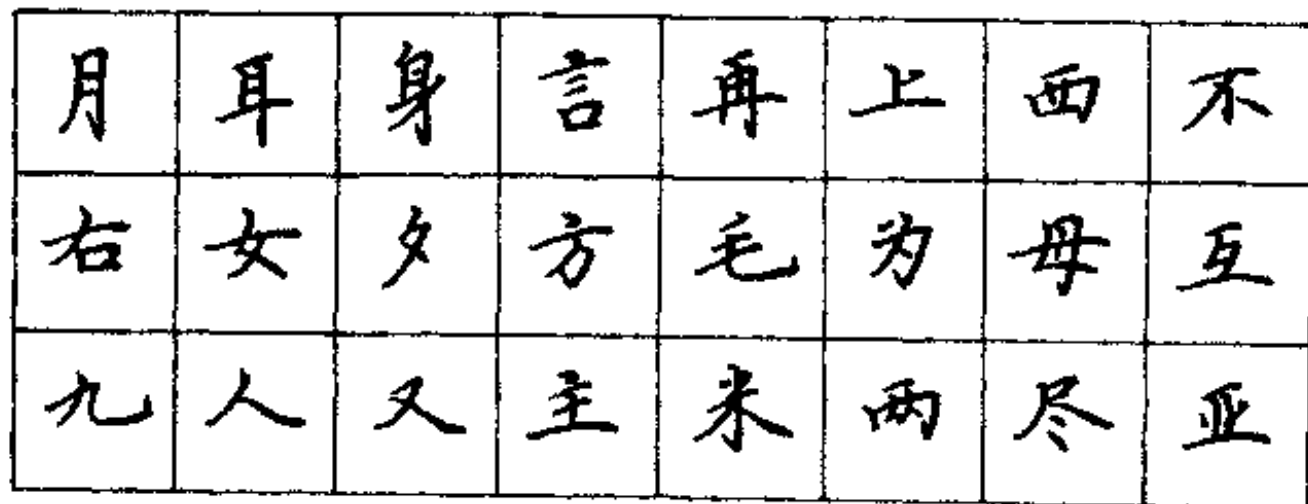 月 耳 身 言 再 上 西 不
右 女 夕 方 毛 为 母 互
九 人 又 主 米 两 尽 亚